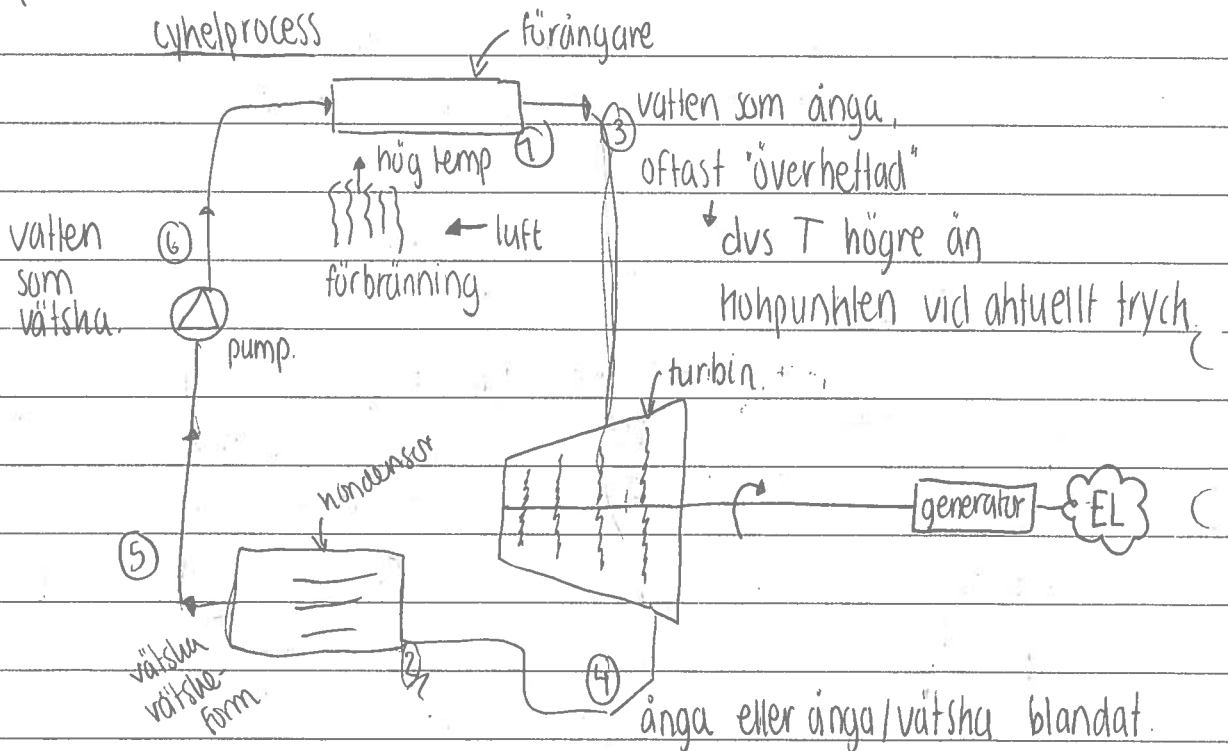 cykelprocess
förångare
① ③ vatten som ånga,
oftast "överhettad"
dvs T högre än
kokpunkten vid aktuellt tryck
hög temp
luft
förbränning.
vatten
som
vätska.
⑥
pump.
turbin.
kondensor
generator
EL
⑤
vätska
vätske-
form
②
④
ånga eller ånga/vätska blandat.